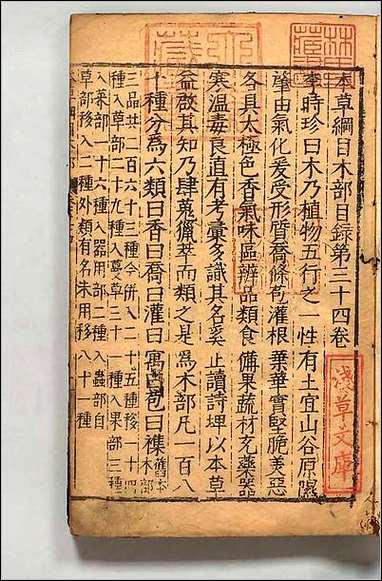 本草綱目木部目録第三十四卷
李時珍曰木乃植物五行之一性有土宜山谷原隰
肇由氣化爰受形質喬條苞灌根葉華實堅脆美惡
各具太極色香氣味區辨品類食備果蔬材充藥器
寒溫毒良直有考彙多識其名奚止讀詩埤以本草
益啟其知乃肆蒐獵萃而類之是爲木部凡一百八
十種分爲六類曰香曰喬曰灌曰寓曰苞曰襍舊本木部
三品共二百六十三種今併入二十五種移一十四
種入草部二十九種入蔓草三十一種入果部三種
入菜部一十六種入器用部二種入蟲部自
草部移入二種外類有名未用移八十一種
淺草文庫